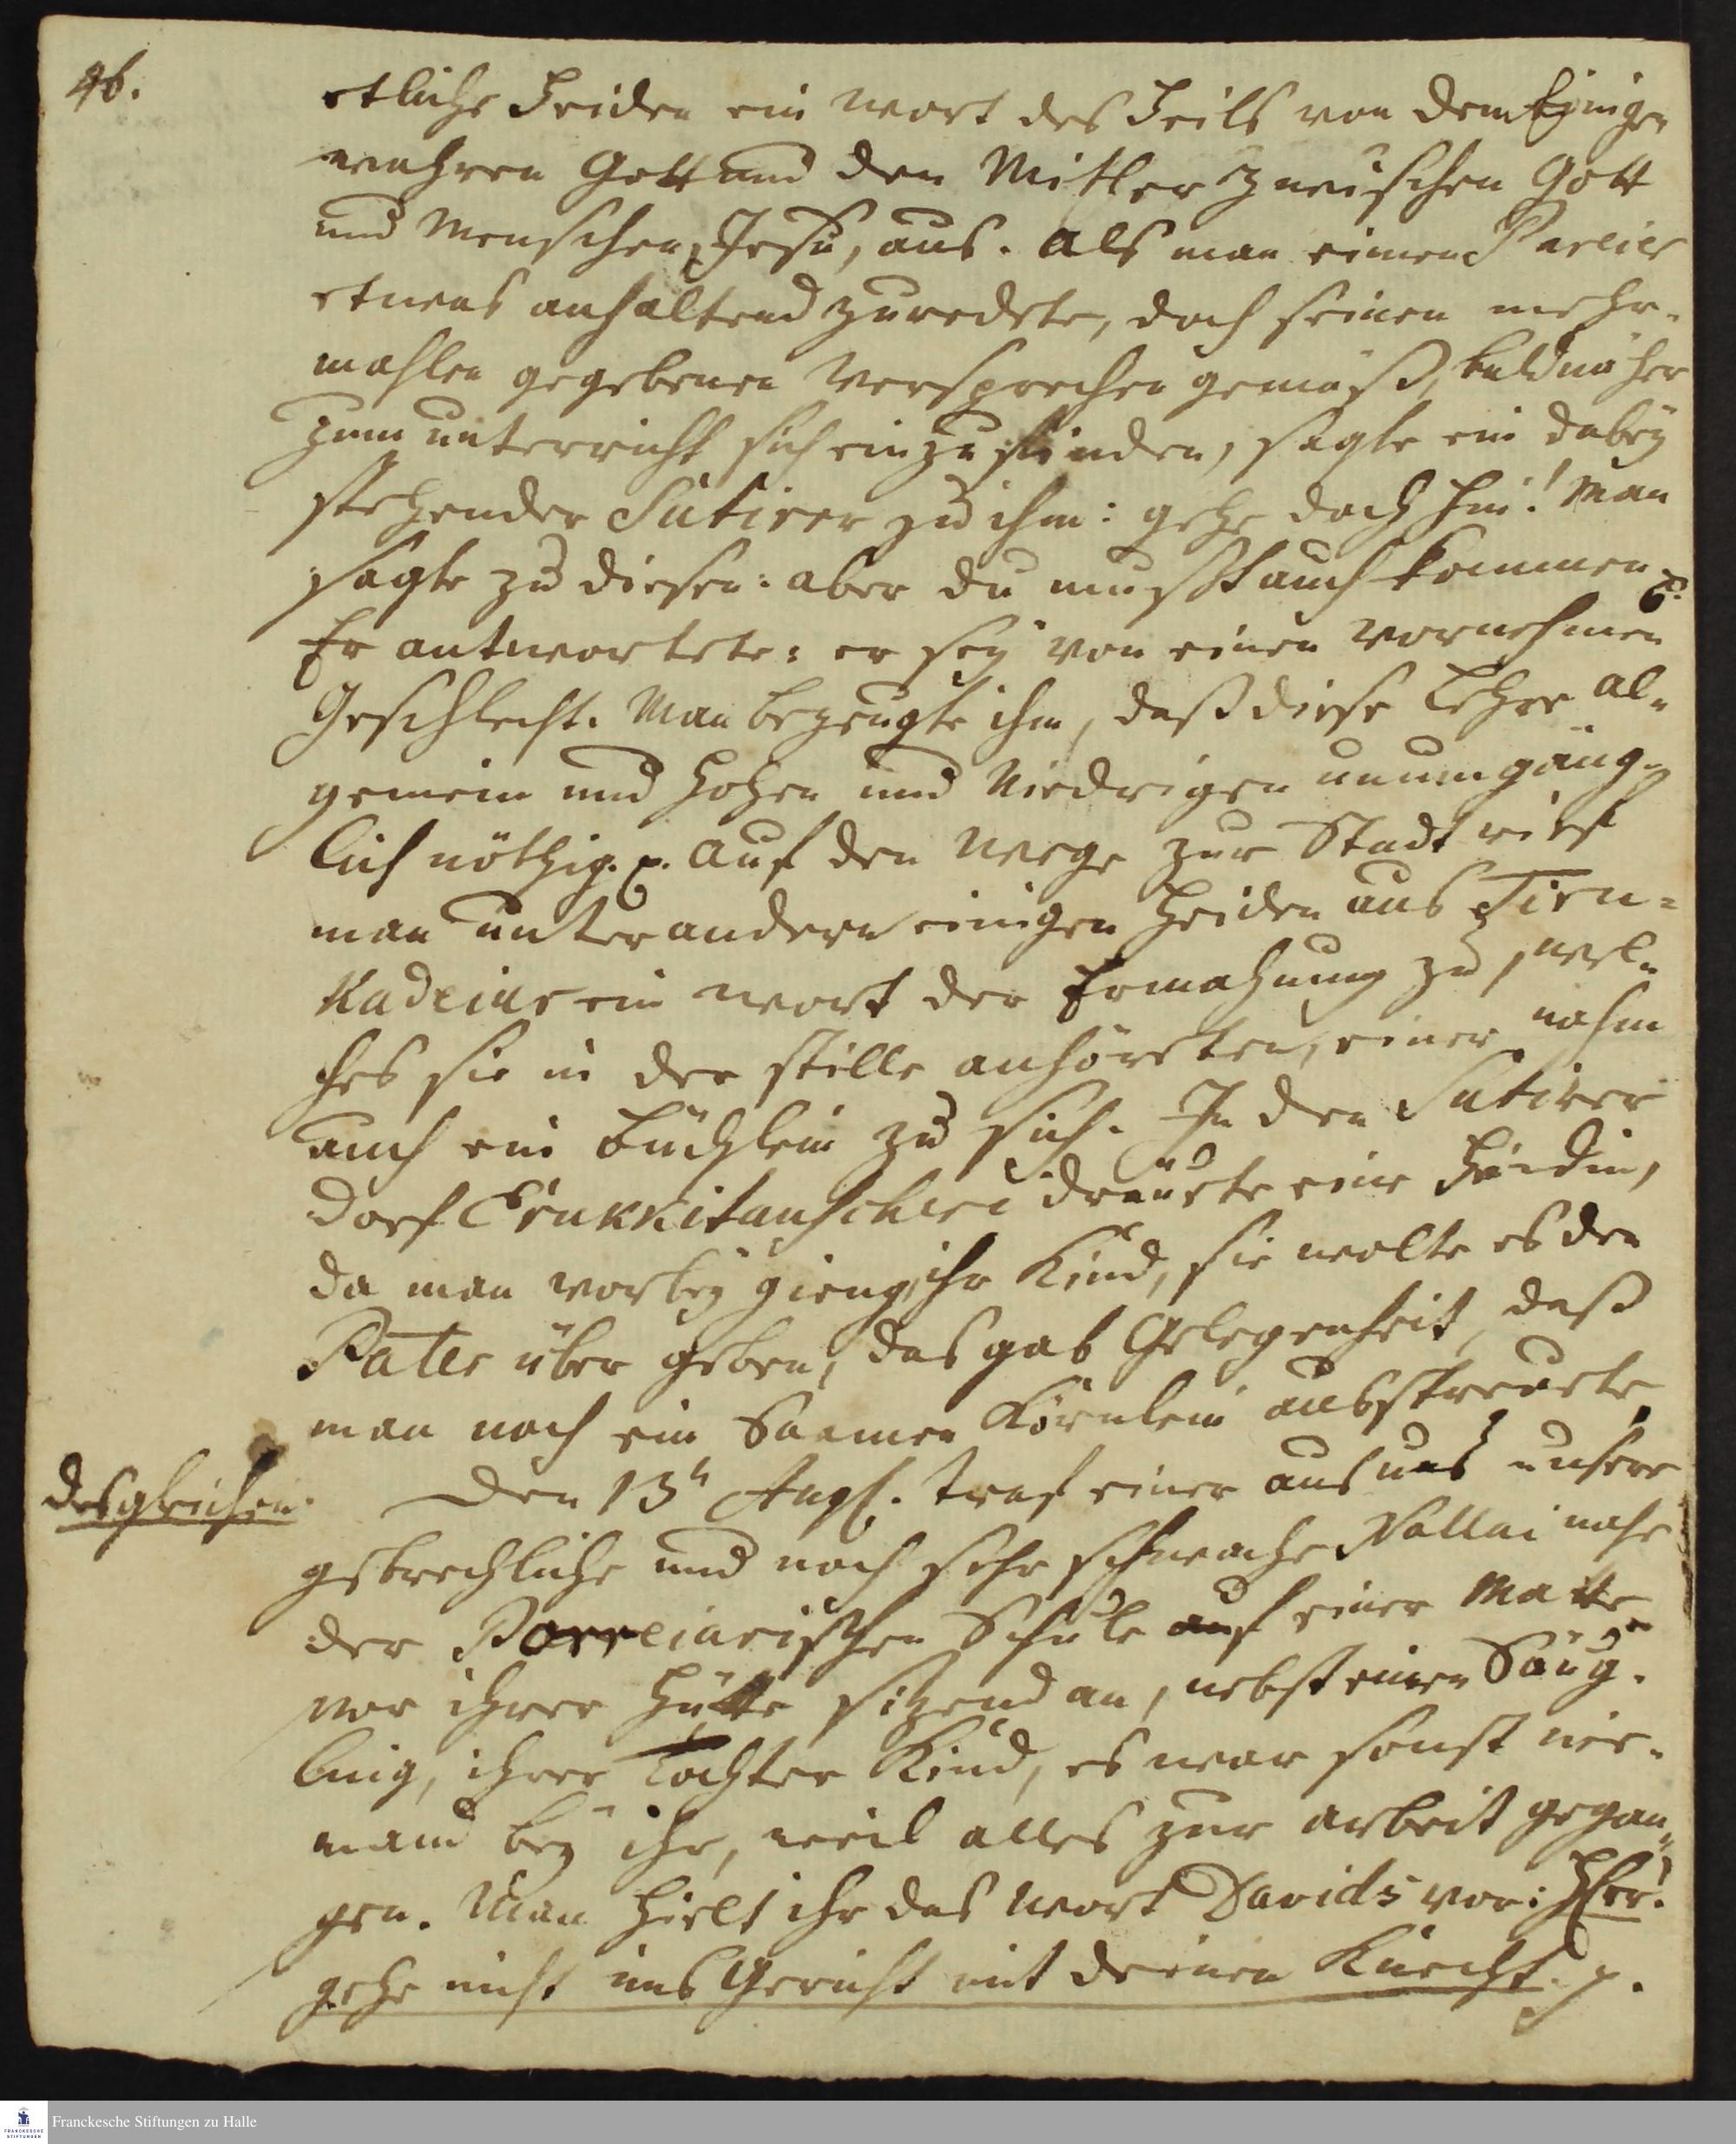 46.
etliche Heiden ein wort des Heils von dem Einigen
wahren Gott und den Mitler zwischen Gott
und Menschen, Jesu, aus. Als man einen Pareier
etwas anhaltend zuredete, doch seinen mehr-
mahlen gegebenen Versprechen gemäß, bald näher
zum unterricht sich einzufinden, sagte ein dabey
stehender Sutirer zu ihm: gehe doch hin! Man
sagte zu diesen: aber du must auch kommen p.
Er antwortete: er sey von einen Vornehmen
Geschlecht. Man bezeugte ihm, daß diese Lehre al-
gemein und Hohen und Niedrigen unumgäng-
lich nöthig. p. Auf den Wege zur Stadt rief
man unter andern einigen Heiden aus Tiru-
Kadeiur ein wort der Ermahnung zu, wel-
ches sie in der stille anhöreten, einer nahm
auch ein Büchlein zu sich. In den Sutirer
Dorf Erukkitanscheri dräuete eine Heidin,
da man vorbey gieng, ihr Kind, sie wolte es den
Pater über geben, das gab Gelegenheit, daß
man noch ein Saamen Körnlein ausstreuete
desgleichen. Den 13t Aug. traf einer aus uns unsere
gebrechliche und noch sehr schwache Nallai nahe
der Parreiarischen Schule auf einer Matte
vor ihrer Hütte sitzend an, nebst einen Säug-
ling, ihrer Tochter Kind, es war sonst nie-
mand bey ihr, weil alles zur arbeit gegan-
gen. Man hielt ihr das Wort Davids vor: HErr.
gehe nicht ins Gericht mit deinen Knecht. p.
Franckesche Stiftungen zu Halle
FRANCKESCHE
STIFTUNGEN